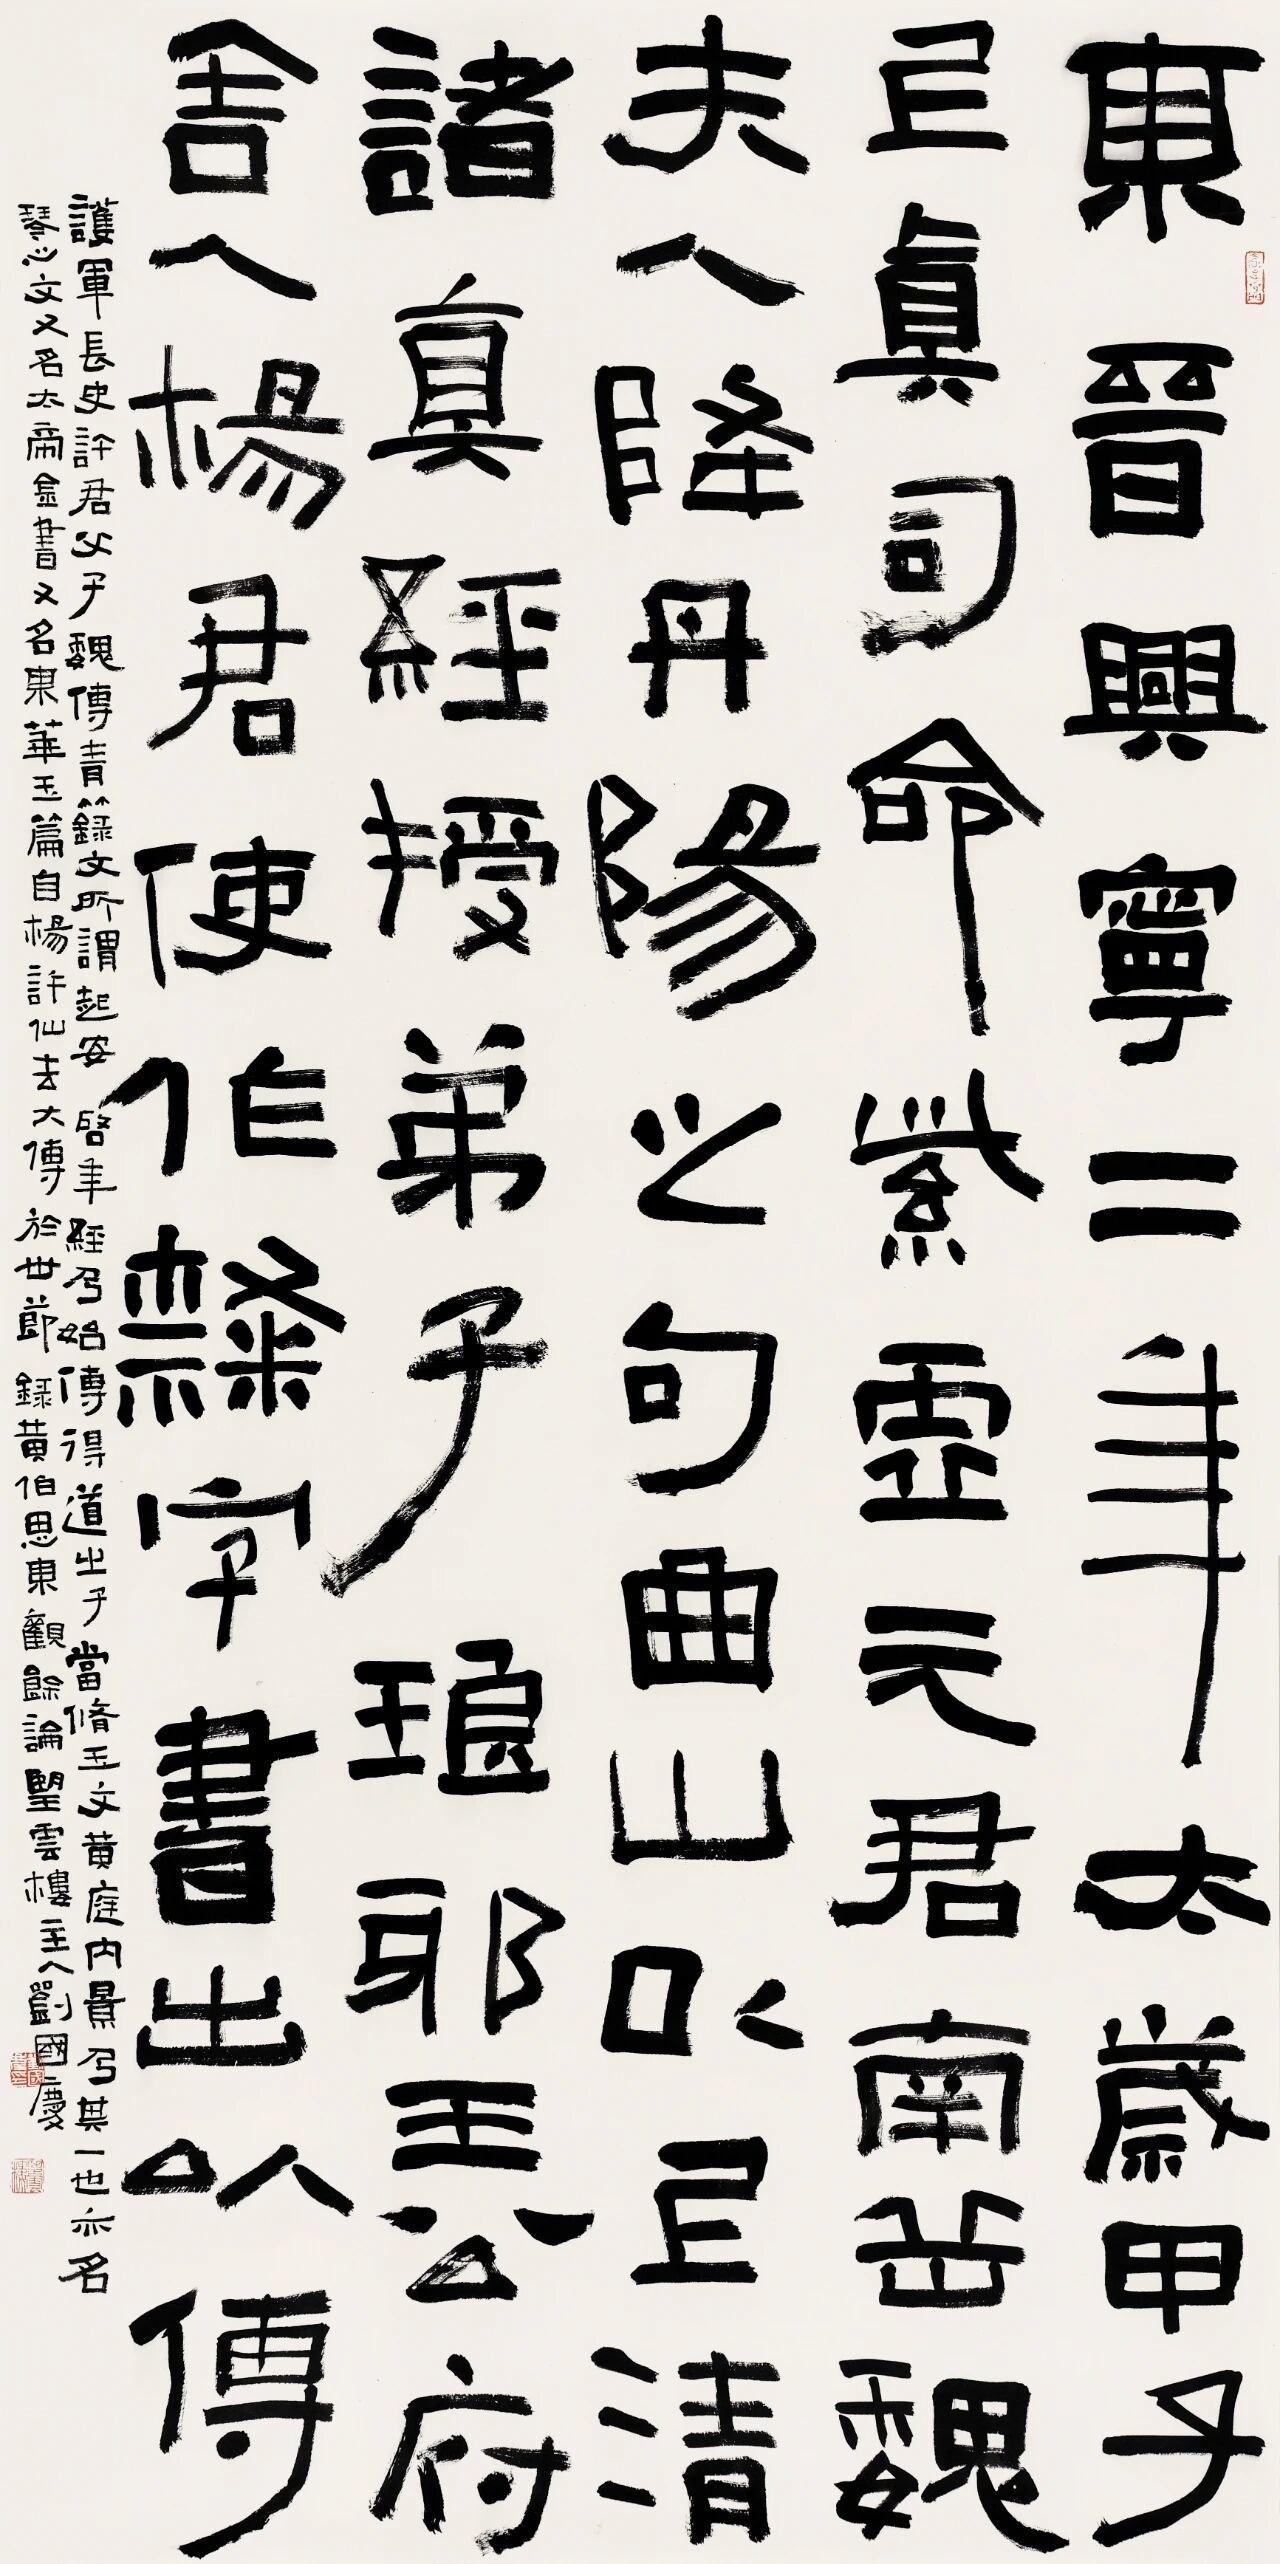 東晉興寧二年太歲甲子
上真司命紫虛元君南岳魏
夫人降丹陽之句曲山以上清
諸真經授弟子瑯邪王公府
舍人楊君使作隸字書出以傳
護軍長史許君父子魏傳青籙文所謂起安啓年經乃始傳得道之子當脩玉文黃庭內景乃其一也亦名
琴心文又名太帝金書又名東華玉篇自楊許仙去大傳於世節錄黃伯思東觀餘論望雲樓主人劉國慶